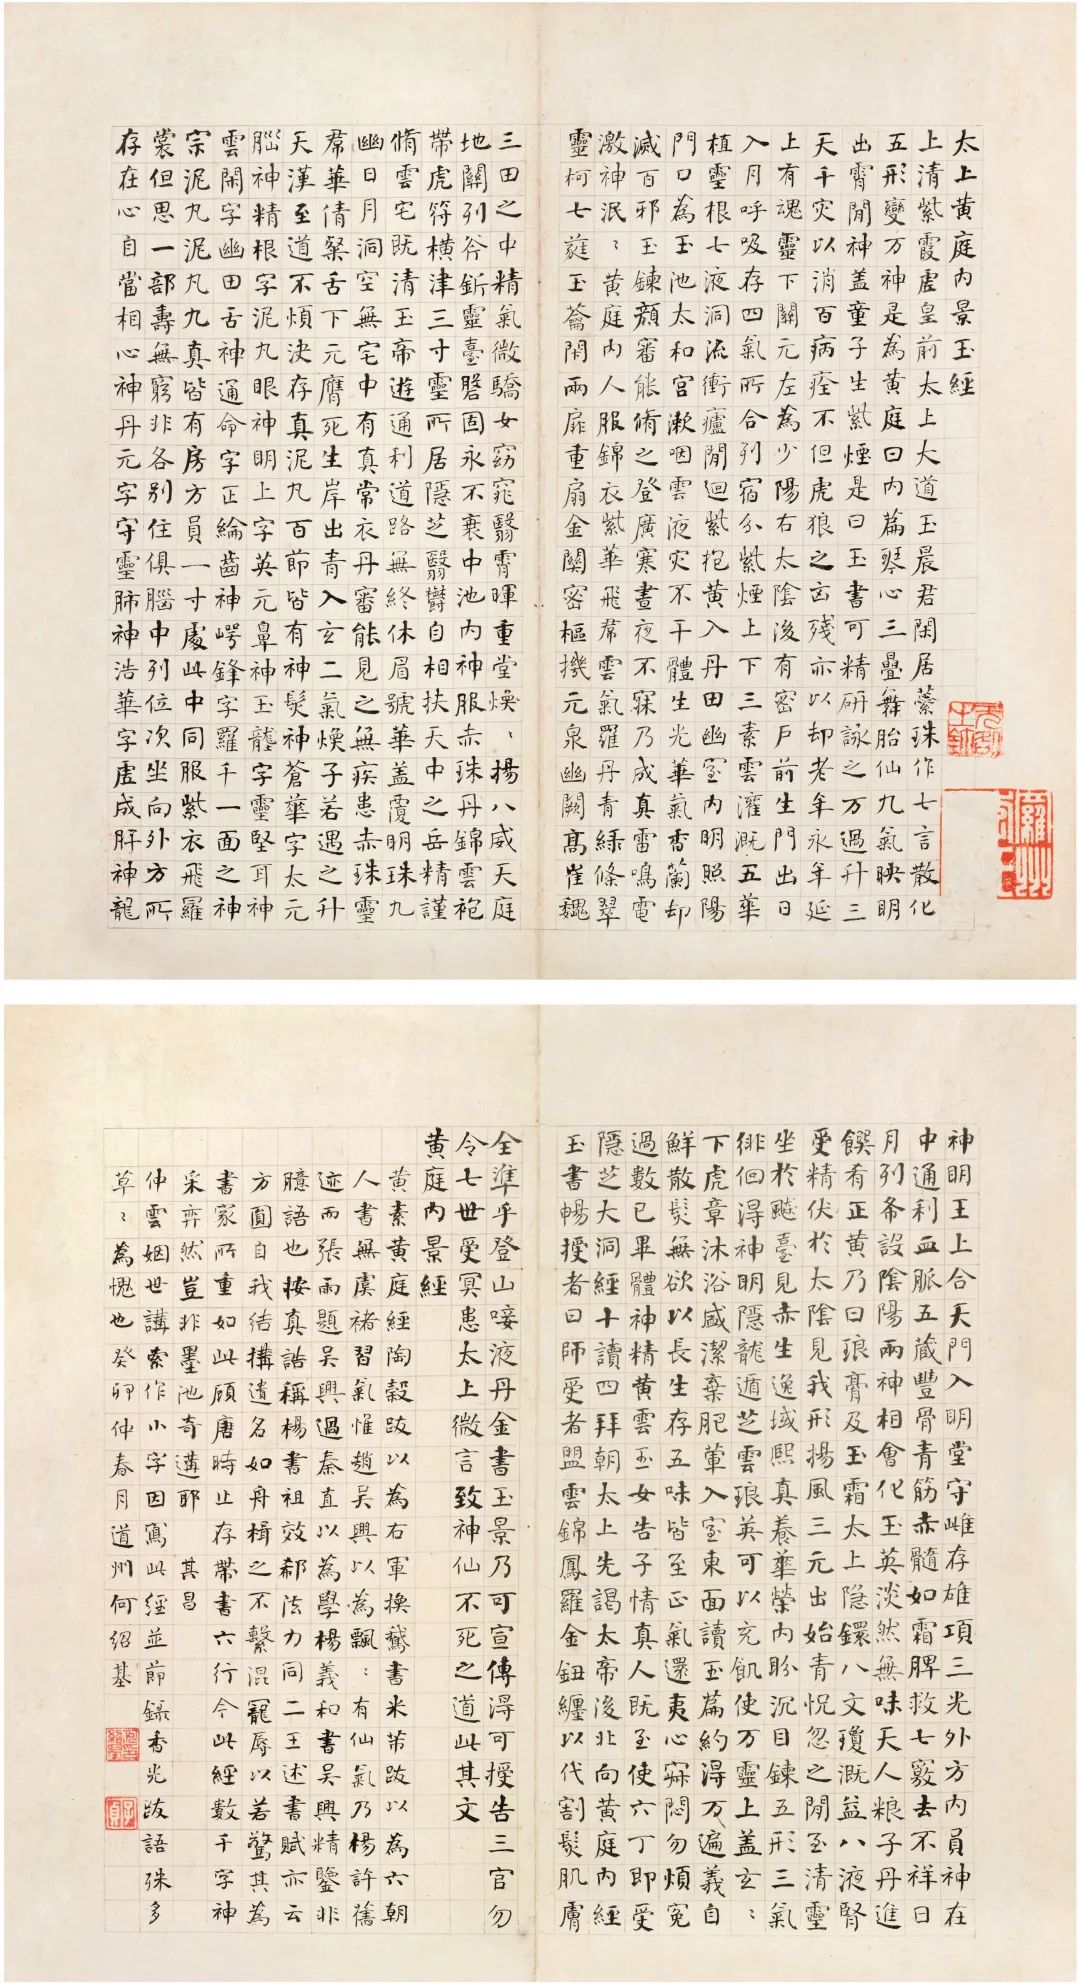 太上黃庭内景玉經
上清紫霞虛皇前太上大道玉晨君閑居蘂珠作七言散化
五形變万神是為黃庭曰内篇琴心三疊舞胎仙九氣映明
出霄間神盖童子生紫煙是曰玉書可精研詠之万過升三
天千灾以消百病痊不但虎狼之凶殘亦以却老年永年延
上有魂靈下關元左為少陽右太陰後有密戶前生門出日
入月呼吸存四氣所合列宿分紫煙上下三素雲灌溉五華
植靈根七液洞流衝廬間迴紫抱黃入丹田幽室内明照陽
門口為玉池太和宫漱咽雲液灾不干體生光華氣香蘭却
滅百邪玉鍊顏審能脩之登廣寒晝夜不寐乃成真雷鳴電
激神泯〻黃庭内人服錦衣紫華飛帬雲氣羅丹青緑條翠
靈柯七蕤玉籥閉兩扉重扇金關密樞機元泉幽闕高崔巍
三田之中精氣微驕女窈窕翳霄暉重堂煥〻揚八威天庭
地關列斧斨靈臺盤固永不衰中池内神服赤珠丹錦雲袍
帶虎符横津三寸靈所居隱芝翳鬱自相扶天中之岳精謹
脩雲宅既清玉帝遊通利道路無終休眉號華蓋覆明珠九
幽日月洞空無宅中有真常衣丹審能見之無疾患赤珠靈
帬華倩粲舌下元膺死生岸出青入玄二氣煥子若遇之升
天漢至道不煩決存真泥丸百節皆有神髮神蒼華字太元
腦神精根字泥丸眼神明上字英元鼻神玉壟字靈堅耳神
雲閑字幽田舌神通命字正綸齒神崿鋒字羅千一面之神
宗泥丸泥丸九真皆有房方員一寸處此中同服紫衣飛羅
裳但思一部壽無窮非各别住俱腦中列位次坐向外方所
存在心自當相心神丹元字守靈肺神浩華字虛成肝神龍
神明王上合天門入明堂守雌存雄項三光外方内員神在
中通利血脈五藏豐骨青筋赤髓如霜脾救七竅去不祥日
月列布設陰陽兩神相會化玉英淡然無味天人粮子丹進
饌肴正黃乃曰琅膏及玉霜太上隐鐶八文瓊溉益八液腎
受精伏於太陰見我形揚風三元出始青怳忽之間至清靈
坐於飈臺見赤生逸域熙真養華榮内盼沉目鍊五形三氣
徘徊得神明隱龍遁芝雲琅英可以充飢使万靈上盖玄〻
下虎章沐浴盛潔棄肥葷入室東面讀玉篇約得万遍義自
鮮散髮無欲以長生存五味皆至正氣還夷心寂悶勿煩寃
過數已畢體神精黃雲玉女告子情真人既至使六丁即受
隱芝大洞經十讀四拜朝太上先謁太帝後北向黃庭内經
玉書暢授者曰師受者盟雲錦鳳羅金鈕纏以代割髮肌膚
全準乎登山唼液丹金書玉景乃可宣傳得可授告三官勿
令七世受冥患太上微言致神仙不死之道此其文
黃庭内景經
黃素黃庭經陶穀跋以為右軍換鵝書米芾跋以為六朝
人書無虞褚習氣惟趙吳興以為飄〻有仙氣乃楊許舊
迹而張雨題吳興過秦直以為學楊義和書吳興精鑒非
臆語也按真誥稱楊書祖效郗法力同二王述書賦亦云
方圓自我結搆遺名如舟楫之不繫混寵辱以若驚其為
書家所重如此顧唐時止存帶書六行今此經數千字神
采弈然豈非墨池奇遘耶 其昌
仲雲姻世講索作小字因寫此經並節錄香光跋語殊多
草〻為愧也癸卯仲春月道州何紹基